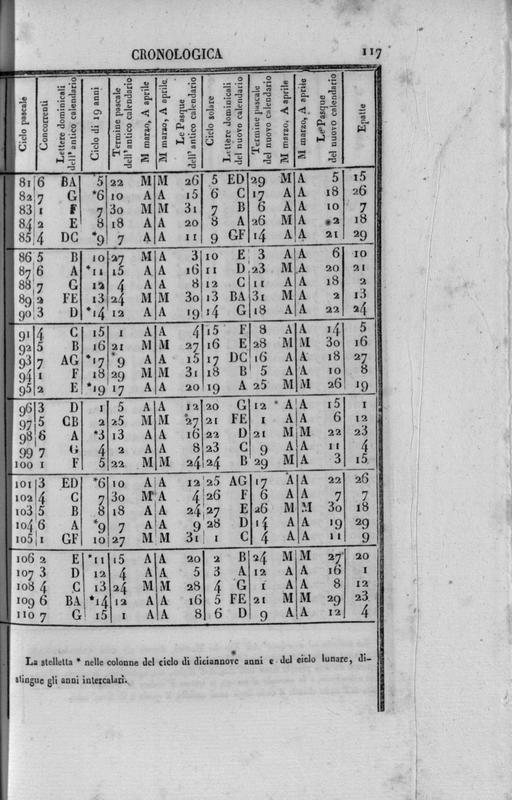 CRONOLOGICA 117
Ciclo pascale | Concorrenti | Lettere dominicali dell' antico calendario | Ciclo di 19 anni | Termine pascale dell' antico calendario | M marzo, A aprile | M marzo, A aprile | Le Pasque dell' antico calendario | Ciclo solare | Lettere dominicali del nuovo calendario | Termine pascale del nuovo calendario | M marzo, A aprile | M marzo, A aprile | Le Pasque del nuovo calendario | Epatte
81 6 BA 5 22 M M 26 5 ED 29 M A 5 15
82 7 G *6 10 A A 15 6 C 17 A A 18 26
83 1 F 7 30 M M 31 7 B 6 A A 10 7
84 2 E 8 18 A A 20 8 A 26 M A *2 18
85 4 DC *9 7 A A 11 9 GF 14 A A 21 29
86 5 B 10 27 M A 3 10 E 3 A A 6 10
87 6 A *11 15 A A 16 11 D 23 M A 20 21
88 7 G 12 4 A A 8 12 C 11 A A 18 2
89 2 FE 13 24 M M 30 13 BA 31 M A 2 13
90 3 D *14 12 A A 19 14 G 18 A A 22 24
91 4 C 15 1 A A 4 15 F 8 A A 14 5
92 5 B 16 21 M M 27 16 E 28 M M 30 16
93 7 AG *17 *9 A A 15 17 DC 16 A A 18 27
94 1 F 18 29 M M 31 18 B 5 A A 10 8
95 2 E *19 17 A A 20 19 A 25 M M 26 19
96 3 D 1 5 A A 12 20 G 12 * A A 15 1
97 5 CB 2 25 M M *27 21 FE 1 A A 6 12
98 6 A *3 13 A A 16 22 D 21 M M 22 23
99 7 G 4 2 A A 8 23 C 9 A A 11 4
100 1 F 5 22 M M 24 24 B 29 M A 3 15
101 3 ED *6 10 A A 12 25 AG 17 A A 22 26
102 4 C 7 30 M A 4 26 F 6 A A 7 7
103 5 B 8 18 A A 24 27 E 26 M M 30 18
104 6 A *9 7 A A 9 28 D 14 A A 19 29
105 1 GF 10 27 M M 31 1 C 4 A A 11 9
106 2 E *11 15 A A 20 2 B 24 M M 27 20
107 3 D 12 4 A A 5 3 A 12 A A 16 1
108 4 C 13 24 M M 28 4 G 1 A A 8 12
109 6 BA *14 12 A A 16 5 FE 21 M M 29 23
110 7 G 15 1 A A 8 6 D 9 A A 12 4
La stelletta * nelle colonne del ciclo di diciannove anni e del ciclo lunare, di-
stingue gli anni intercalari.